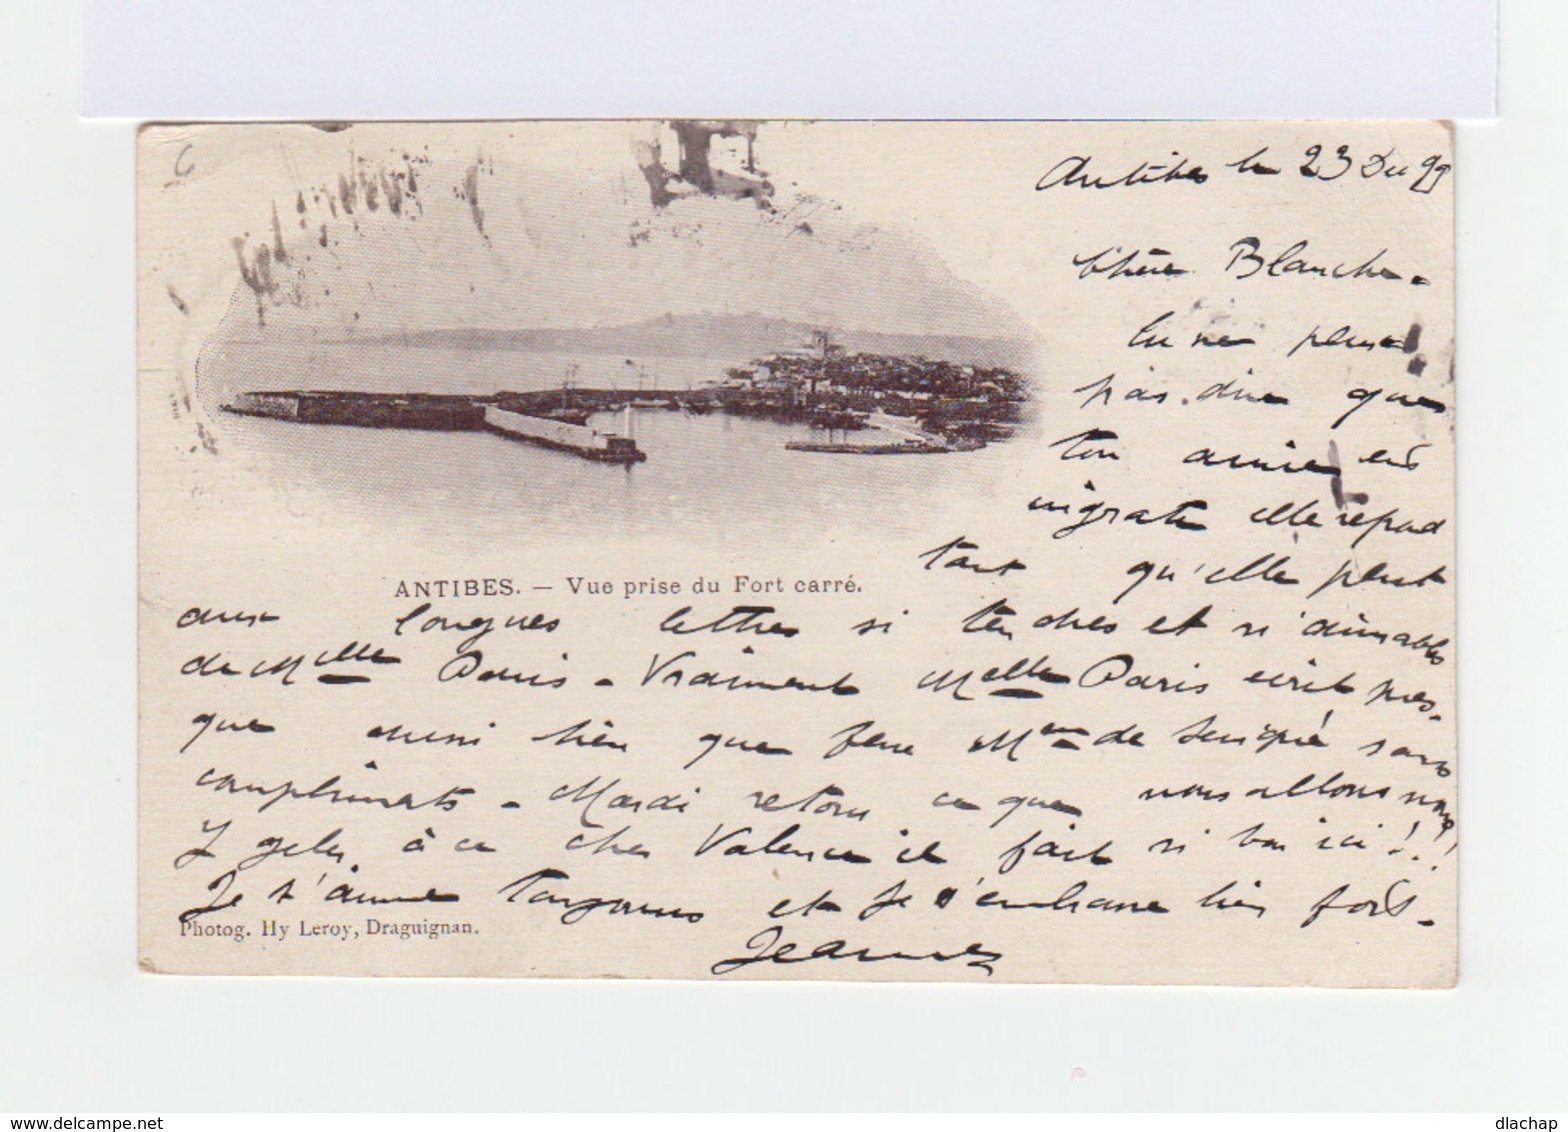 Antibes le 23 Dec 99
Chère Blanche.
Tu ne peux
pas dire que
ton amie est
ingrate elle répond
tant qu'elle peut
aux longues lettres si tendres et si aimables
de Melle Paris. Vraiment Melle Paris écrit pres-
que aussi bien que feue Mme de Sévigné sans
compliments. Mardi retour ce que nous allons nous
y geler à ce cher Valence il fait si bon ici!!!
Je t'aime toujours et je t'embrasse bien fort.
Jeanne
ANTIBES. — Vue prise du Fort carré.
Photog. Hy Leroy, Draguignan.
6
www.delcampe.net
dlachap